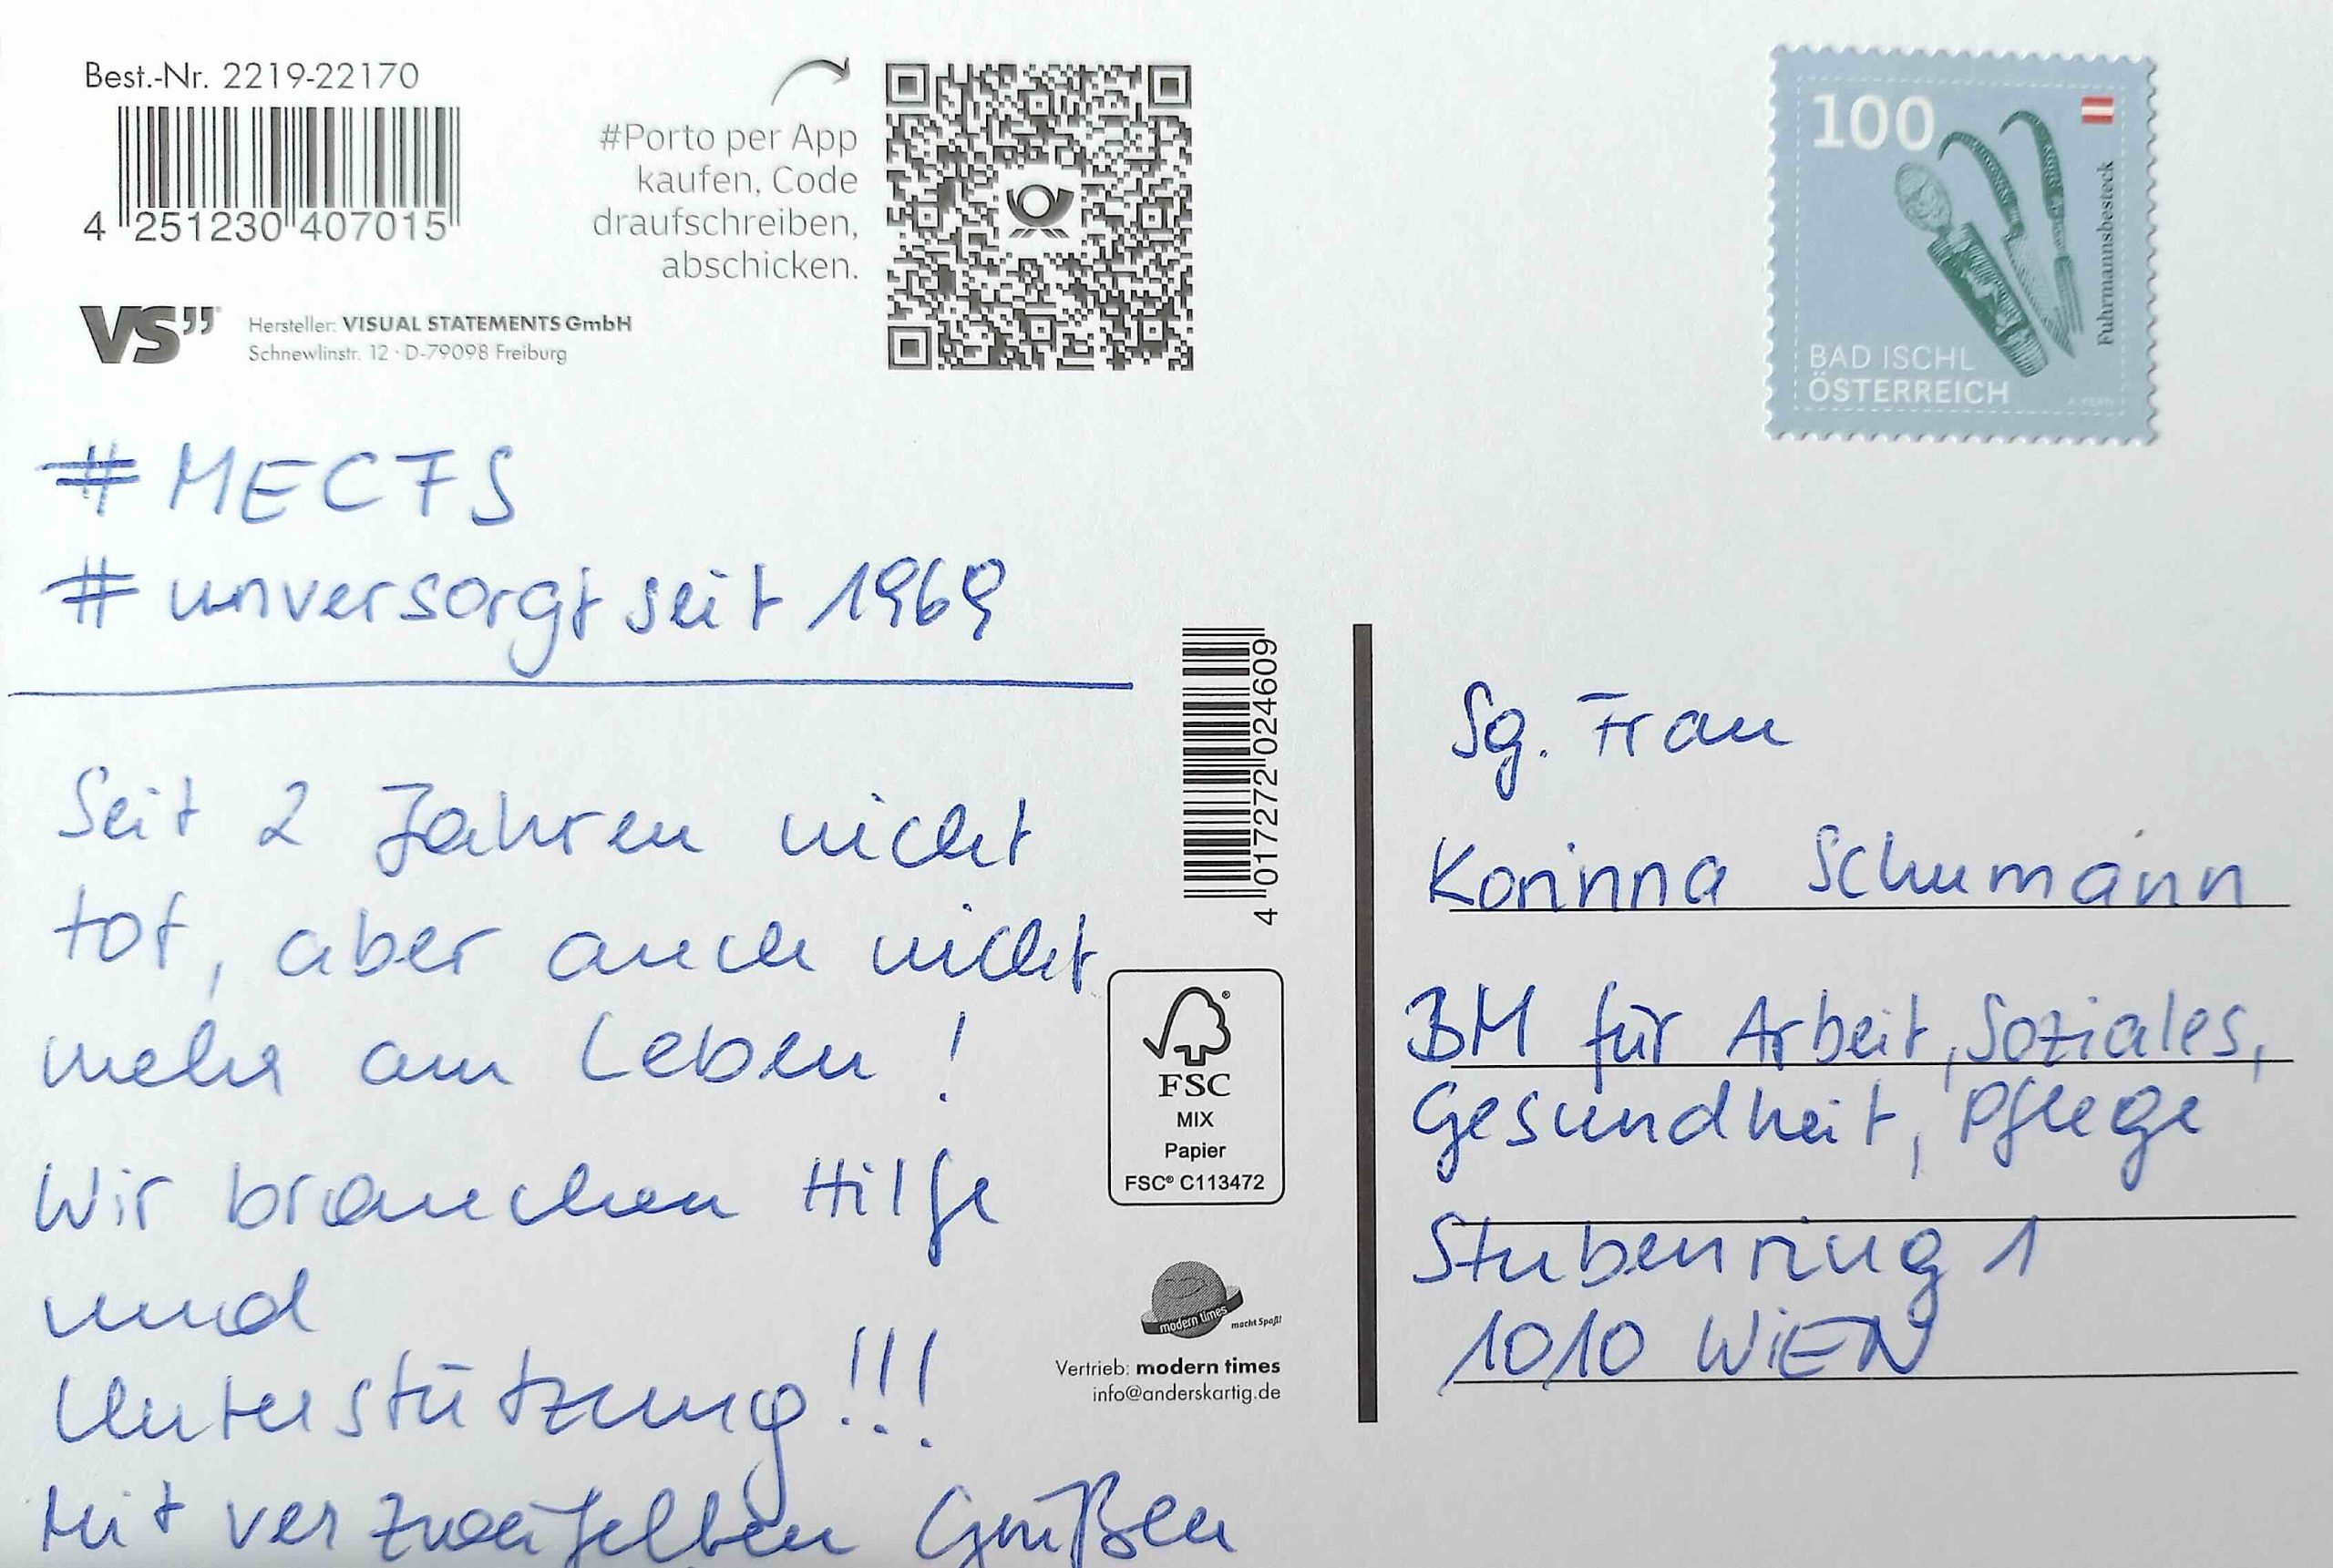 Best.-Nr. 2219-22170
4 251230 407015
#Porto per App
kaufen, Code
draufschreiben,
abschicken.
VS”
Hersteller: VISUAL STATEMENTS GmbH
Schnewlinstr. 12 · D-79098 Freiburg
100
Fuhrmannsbesteck
BAD ISCHL
ÖSTERREICH
A. FERN
# MECFS
# unversorgt seit 1969
Seit 2 Jahren nicht
tot, aber auch nicht
mehr am Leben!
Wir brauchen Hilfe
und
Unterstützung!!!
Mit verzweifelten Grüßen
4 017272 024609
FSC®
MIX
Papier
FSC® C113472
modern times
macht Spaß!
Vertrieb: modern times
info@anderskartig.de
Sg. Frau
Korinna Schumann
BM für Arbeit, Soziales,
Gesundheit, Pflege
Stubenring 1
1010 WIEN